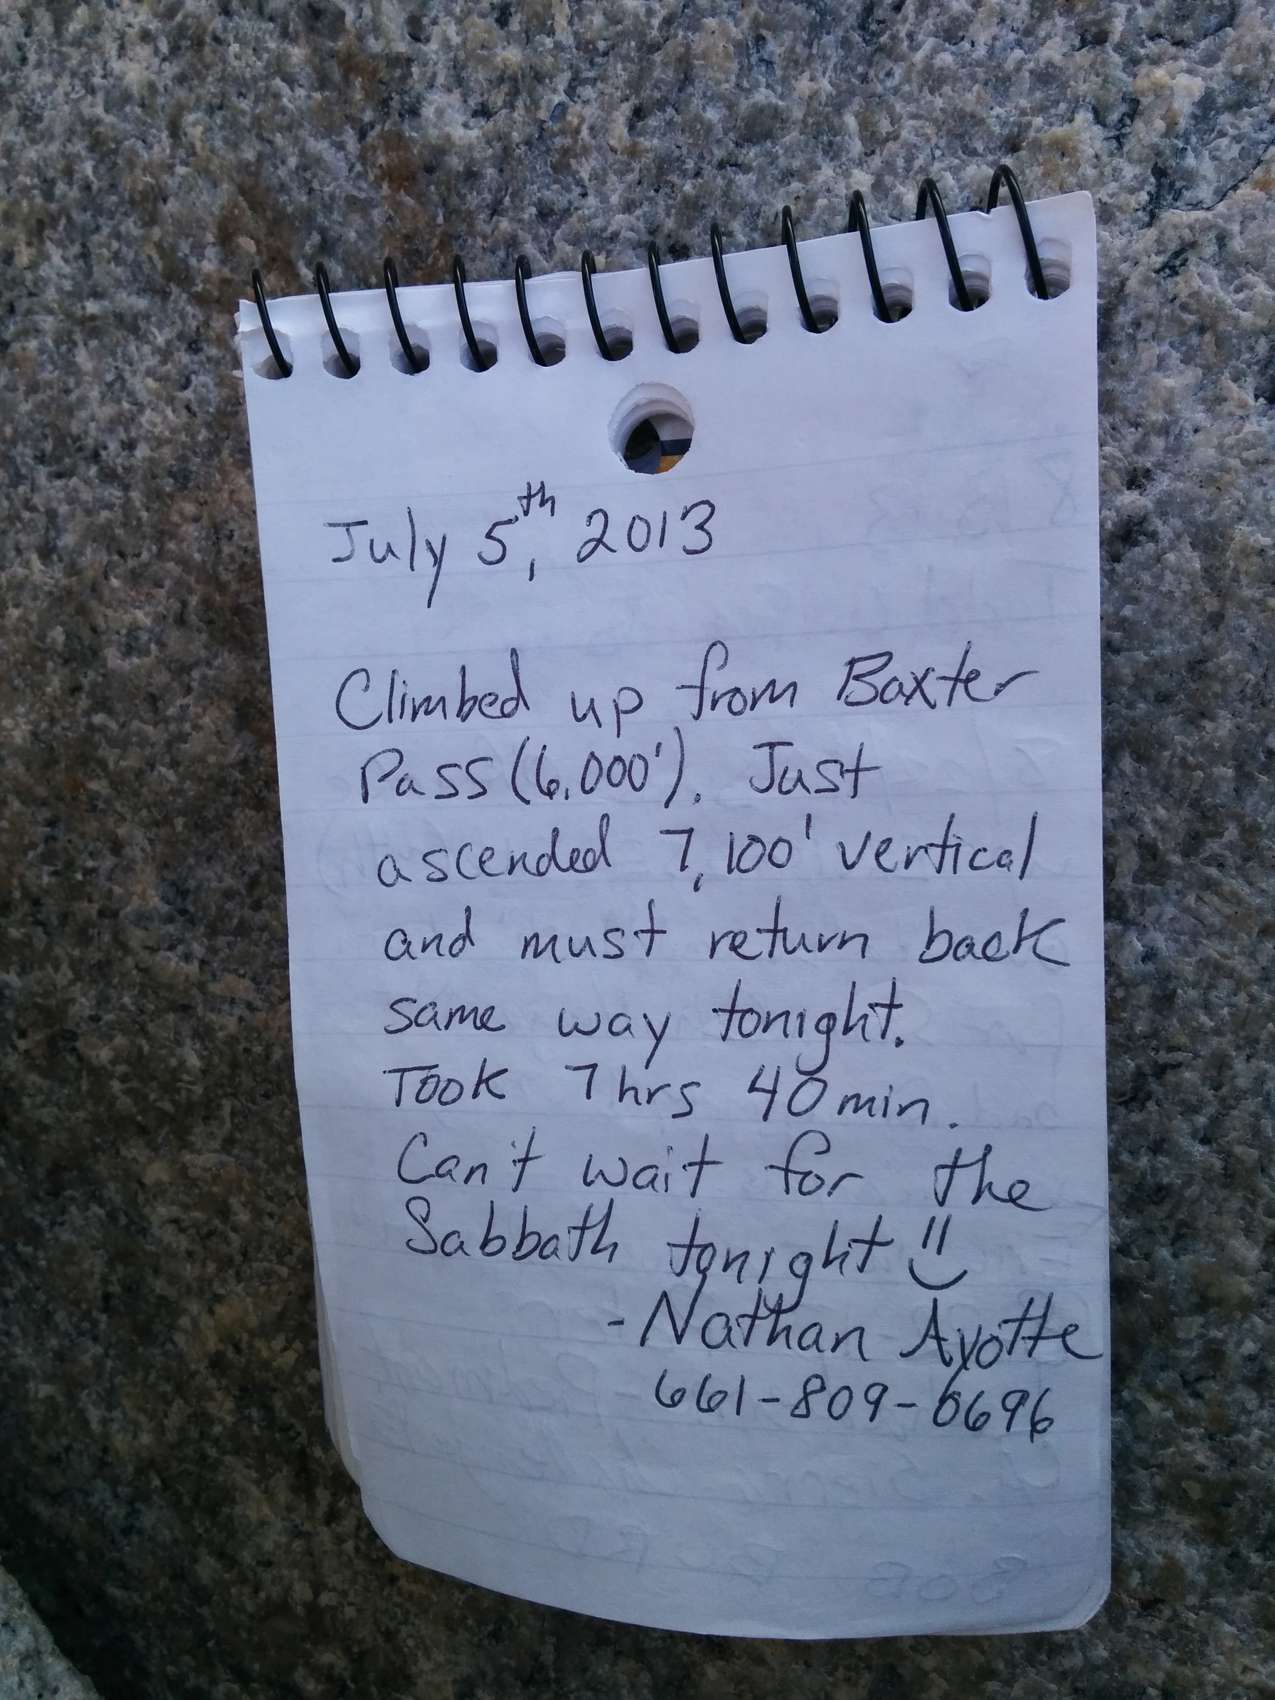 July 5th, 2013
Climbed up from Baxter
Pass (6,000'). Just
ascended 7,100' vertical
and must return back
same way tonight.
Took 7 hrs 40 min.
Can't wait for the
Sabbath tonight
- Nathan Ayotte
661-809-6696